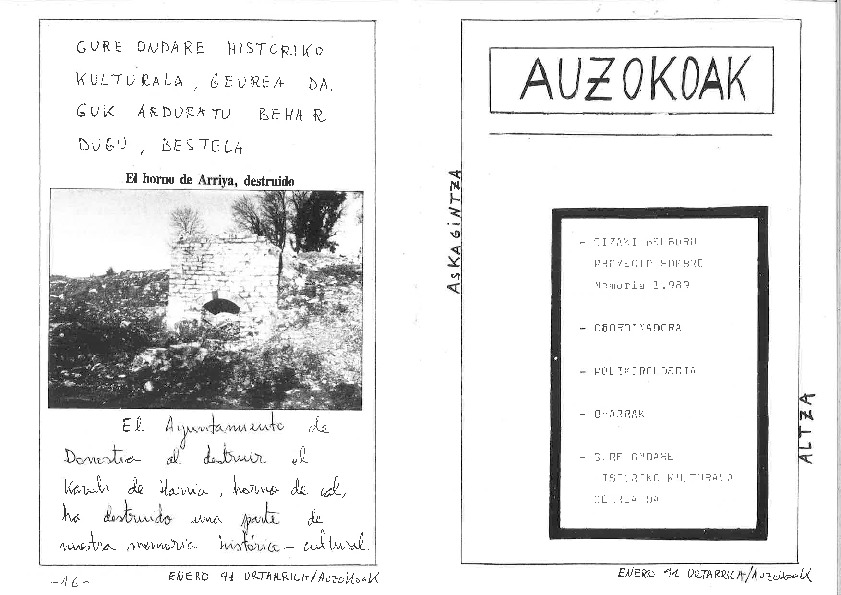 GURE ONDARE HISTORIKO
KULTURALA, GEUREA DA.
GUK ARDURATU BEHAR
DUGU, BESTELA
El horno de Arriya, destruido
El Ayuntamiento de
Donostia al destruir el
de Harria, horno de cal,
ha destruido una parte de
nuestra memoria histórica - cultural.
-16-
ENERO 91 URTARRILA/AUZOKOAK
AUZOKOAK
ASKAGINTZA
- GIZAKI HELBURU
PROYECTO HOMBRE
Memoria 1.989
- COORDINADORA
- POLIKIROLDEGIA
- OHARRAK
- GURE ONDARE
HISTORIKO KULTURALA
GEUREA DA
ALTZA
ENERO 91 URTARRILA/AUZOKOAK